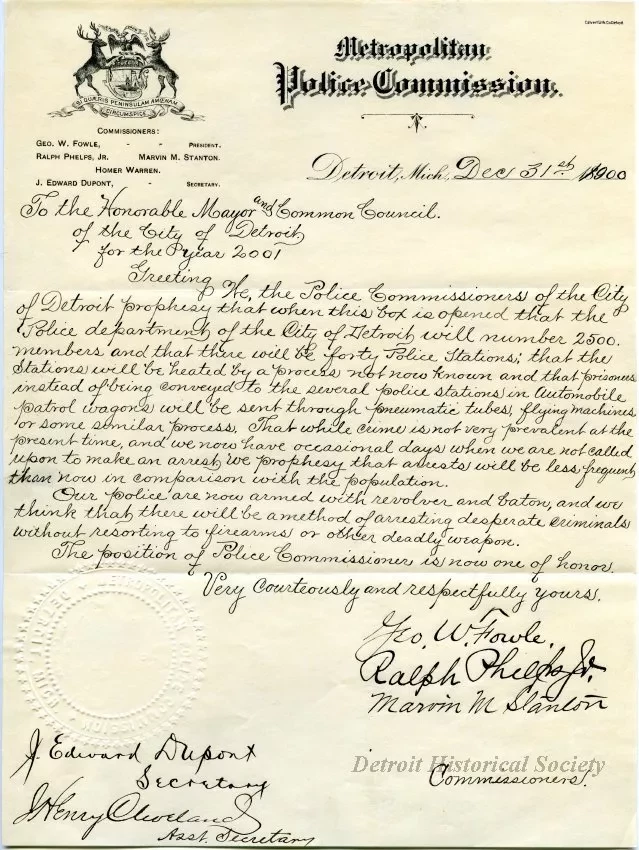 Calvert Lith. Co. Detroit
Metropolitan
Police Commission.
SI QUÆRIS PENINSULAM AMŒNAM
CIRCUMSPICE
COMMISSIONERS:
GEO. W. FOWLE, - - PRESIDENT.
RALPH PHELPS, JR. MARVIN M. STANTON.
HOMER WARREN.
J. EDWARD DUPONT, - SECRETARY.
Detroit, Mich. Dec 31st 1900
To the Honorable Mayor and Common Council.
of the City of Detroit
for the year 2001
Greeting We, the Police Commissioners of the City
of Detroit prophesy that when this box is opened that the
Police department of the City of Detroit will number 2500.
members and that there will be forty Police Stations; that the
Stations will be heated by a process not now known and that prisoners
instead of being conveyed to the several police stations in Automobile
patrol wagons will be sent through pneumatic tubes, flying machines,
or some similar process. That while crime is not very prevalent at the
present time, and we now have occasional days when we are not called
upon to make an arrest, we prophesy that arrests will be less frequent
than now in comparison with the population.
Our police are now armed with revolver and baton, and we
think that there will be a method of arresting desperate criminals
without resorting to firearms or other deadly weapon.
The position of Police Commissioner is now one of honor.
Very Courteously and respectfully yours.
Geo. W. Fowle.
Ralph Phelps Jr.
Marvin M Stanton
Commissioners.
J. Edward Dupont
Secretary
J Henry Cleveland
Asst. Secretary
Detroit Historical Society